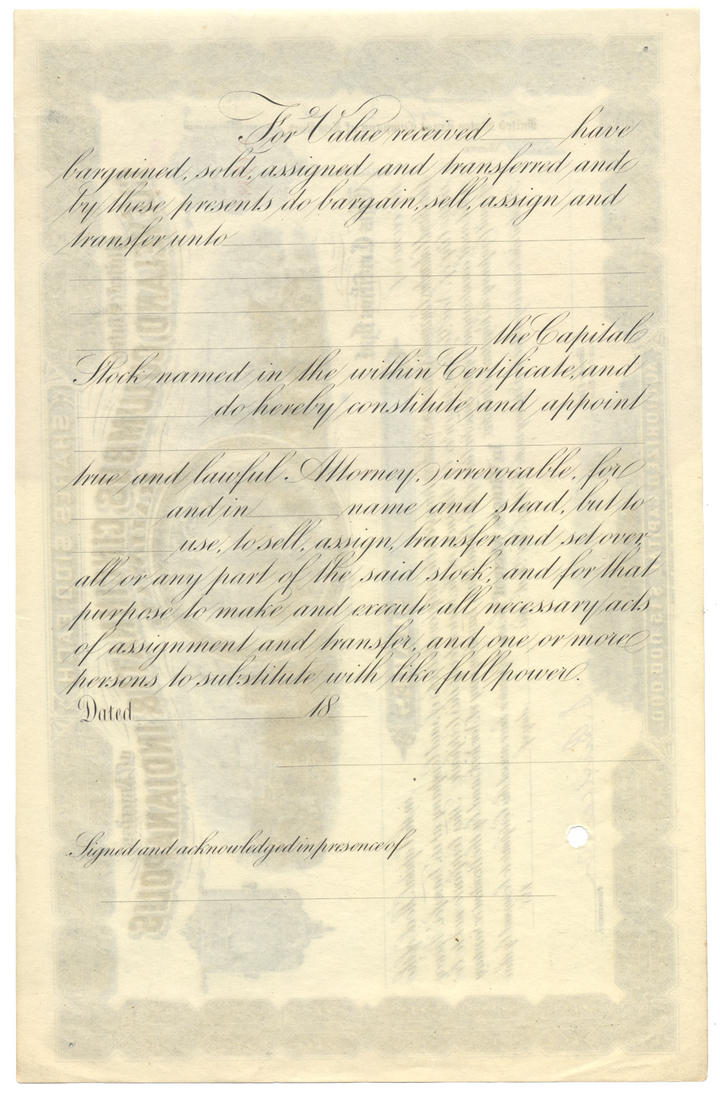 For Value received have
bargained, sold, assigned and transferred and
by these presents do bargain, sell, assign and
transfer unto
the Capital
Stock named in the within Certificate, and
do hereby constitute and appoint
true and lawful Attorney, irrevocable, for
and in name and stead, but to
use, to sell, assign, transfer and set over
all or any part of the said stock, and for that
purpose to make and execute all necessary acts
of assignment and transfer, and one or more
persons to substitute with like full power.
Dated 18
Signed and acknowledged in presence of